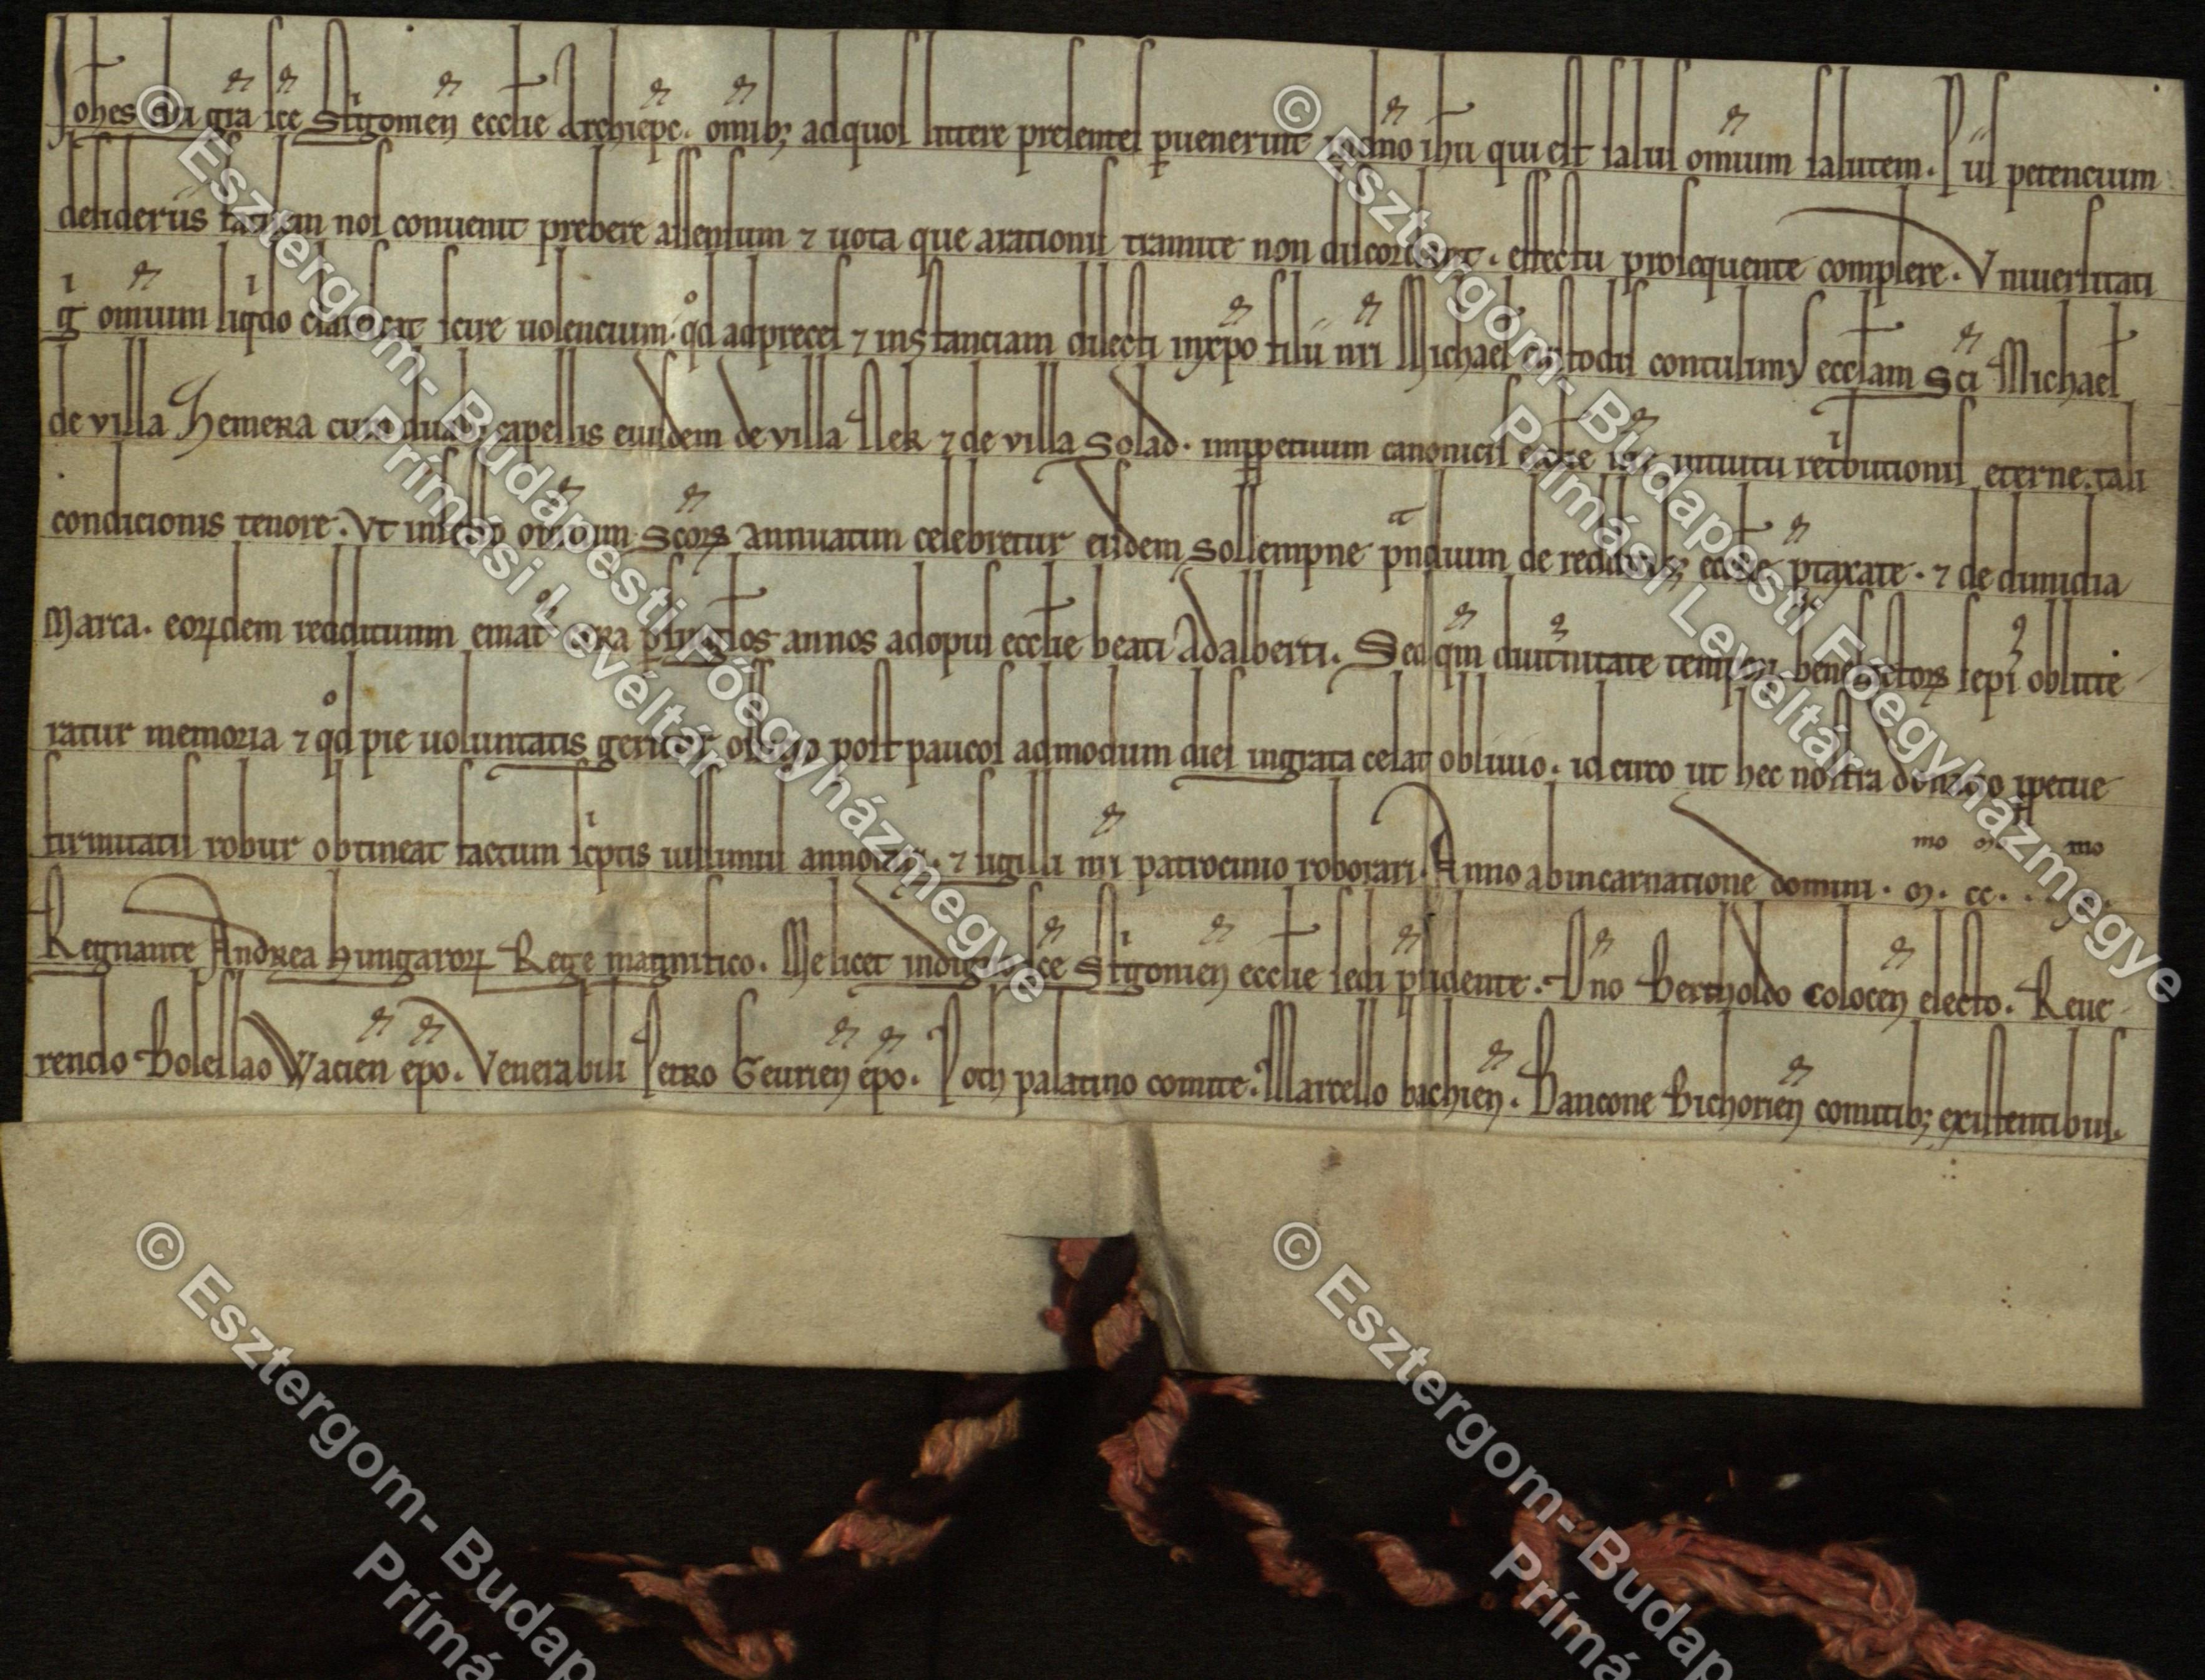 Johes di gra sce Strigonien ecclie Archiepc. omib; ad quos littere presentes pervenerint in dno ihu qui est salus omium salutem. Piis petencium
desideriis facilem nos convenit prebere assensum ⁊ vota que a rationis tramite non discordant. effectu prosequente complere. Universitati
igr omium liqdo clarescat scire volencium. qd ad preces ⁊ instanciam dilecti in xpo filii nri Michael custodis contulimus ecclam sci Michael
de villa Hemera cum duab; capellis eiusdem de villa Nek ⁊ de villa Solad. in ppetuum canonicis ecclie intuitu retbutionis eterne. tali
condicionis tenore. Ut in festo omium scorꝝ annuatim celebretur eisdem sollempne pndium de redditib; ecclie ptaxate. ⁊ de dimidia
Marca. eorꝝdem reddituum emat cera p singlos annos ad opus ecclie beati Adalberti. Sed qm diuturnitate temporꝝ benefactorꝝ sepius oblitte
ratur memoria ⁊ qd pie voluntatis geritur post paucos admodum dies ingrata celat oblivio. idcirco ut hec nostra donatio ppetue
firmitatis robur obtineat factum scptis iussimus annotari. ⁊ sigilli nri patrocinio roborari. Anno ab incarnatione domini. m. cc.
Regnante Andrea hungarorꝝ Rege magnifico. Me licet indigno sce Strigonien ecclie sedi psidente. Dno Bertholdo Colocen electo. Reve
rendo Bolesllao Wacien epo. Venerabili Petro Geurien epo. Poth palatino comite. Marcello bachien. Bancone Bichorien comitib; existentibus.
© Esztergom- Budapesti Főegyházmegye
Prímási Levéltár
© Esztergom- Budapesti Főegyházmegye
Prímási Levéltár
© Esztergom- Budap
Prímá
© Esztergom- Budap
Prímá